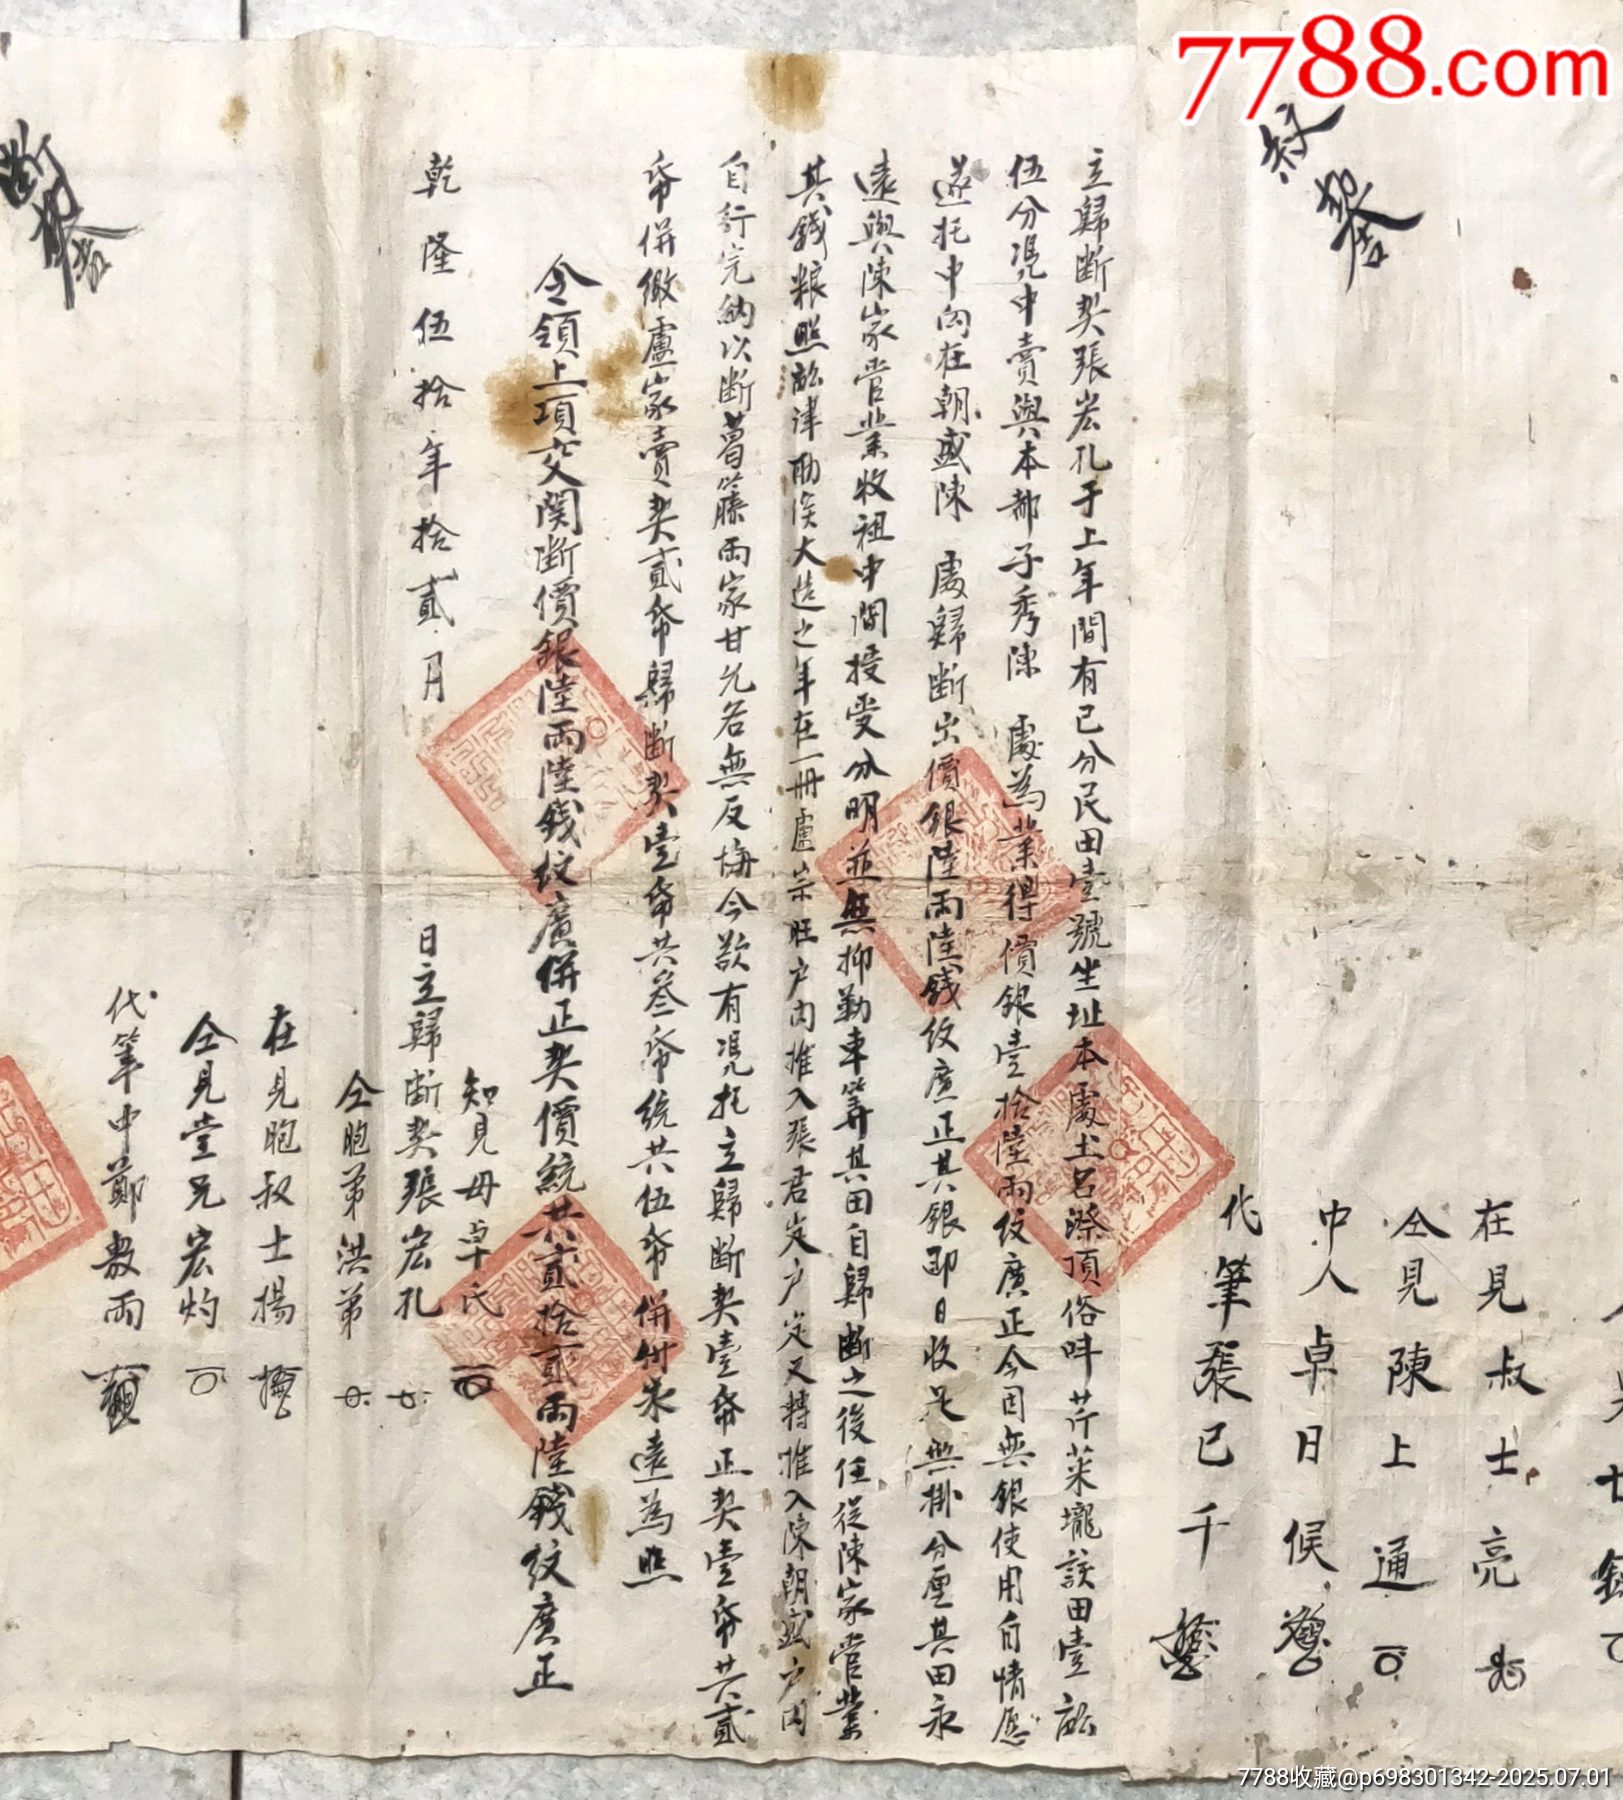 7788.com
在見叔士亮
仝見陳上通
中人卓日候
代筆張已千
立歸断契張宏孔于上年間有己分民田壹號坐址本處土名漈頂俗呌芹菜壠該田壹畝
伍分凴中賣與本都子秀陳 處為業得價銀壹拾陸両紋廣正今因無銀使用自情愿
遂托中向在朝盛陳 處歸断出價銀陸両陸錢紋廣正其銀即日收足無掛分厘其田永
遠與陳家管業收租中間授受分明並無抑勒車筭其田自歸断之後任從陳家管業
其錢粮照畝津貼俟大造之年在一冊盧宗旺户内推入張君定户定又轉推入陳朝盛户内
自行完納以断葛籐両家甘允各無反悔今欲有凴托立歸断契壹帋正契壹帋共貳
帋併繳盧家賣契貳帋歸断契壹帋共叁帋統共伍帋併付朱遠為照
仝領上項交関断價銀陸両陸錢紋廣併正契價統共貳拾貳両陸錢紋廣正
乾隆伍拾年拾貳月 日立歸断契張宏孔
知見母卓氏
仝胞弟洪弟
在見胞叔士揚
仝見堂兄宏灼
代筆中鄭敷雨
7788收藏@p698301342-2025.07.01